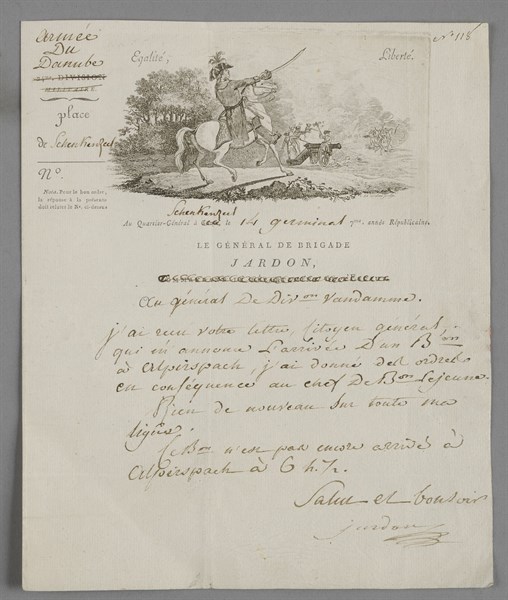 armée
Du
Danube
DIVISION
MILITAIRE
place
de Schenkenzel
Nº.
Nota. Pour le bon ordre,
la réponse à la présente
doit relater le Nº. ci-dessus
Egalité,
Liberté.
Nº 118
Schenkenzel
Au Quartier-Général à le 14 germinal 7me. année Républicaine.
LE GÉNÉRAL DE BRIGADE
JARDON,
au général De Divon Vandamme.
j'ai reçu votre lettre, Citoyen général,
qui m'annonce l'arrivée D'un Bon
à alpirspach, j'ai donné des ordres
en conséquence au chef De Bon Lejeune.
Rien de nouveau sur toute ma
ligne.
Ce Bon n'est pas encore arrivé à
alpirspach à 6 h.
Salut et bonsoir
jardon